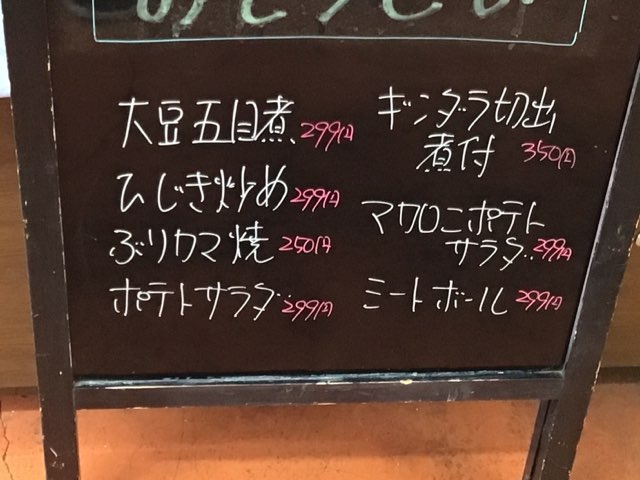 大豆五目煮 299円
ひじき炒め 299円
ぶりカマ焼 250円
ポテトサラダ 299円
ギンダラ切出
煮付 350円
マカロニポテト
サラダ 299円
ミートボール 299円